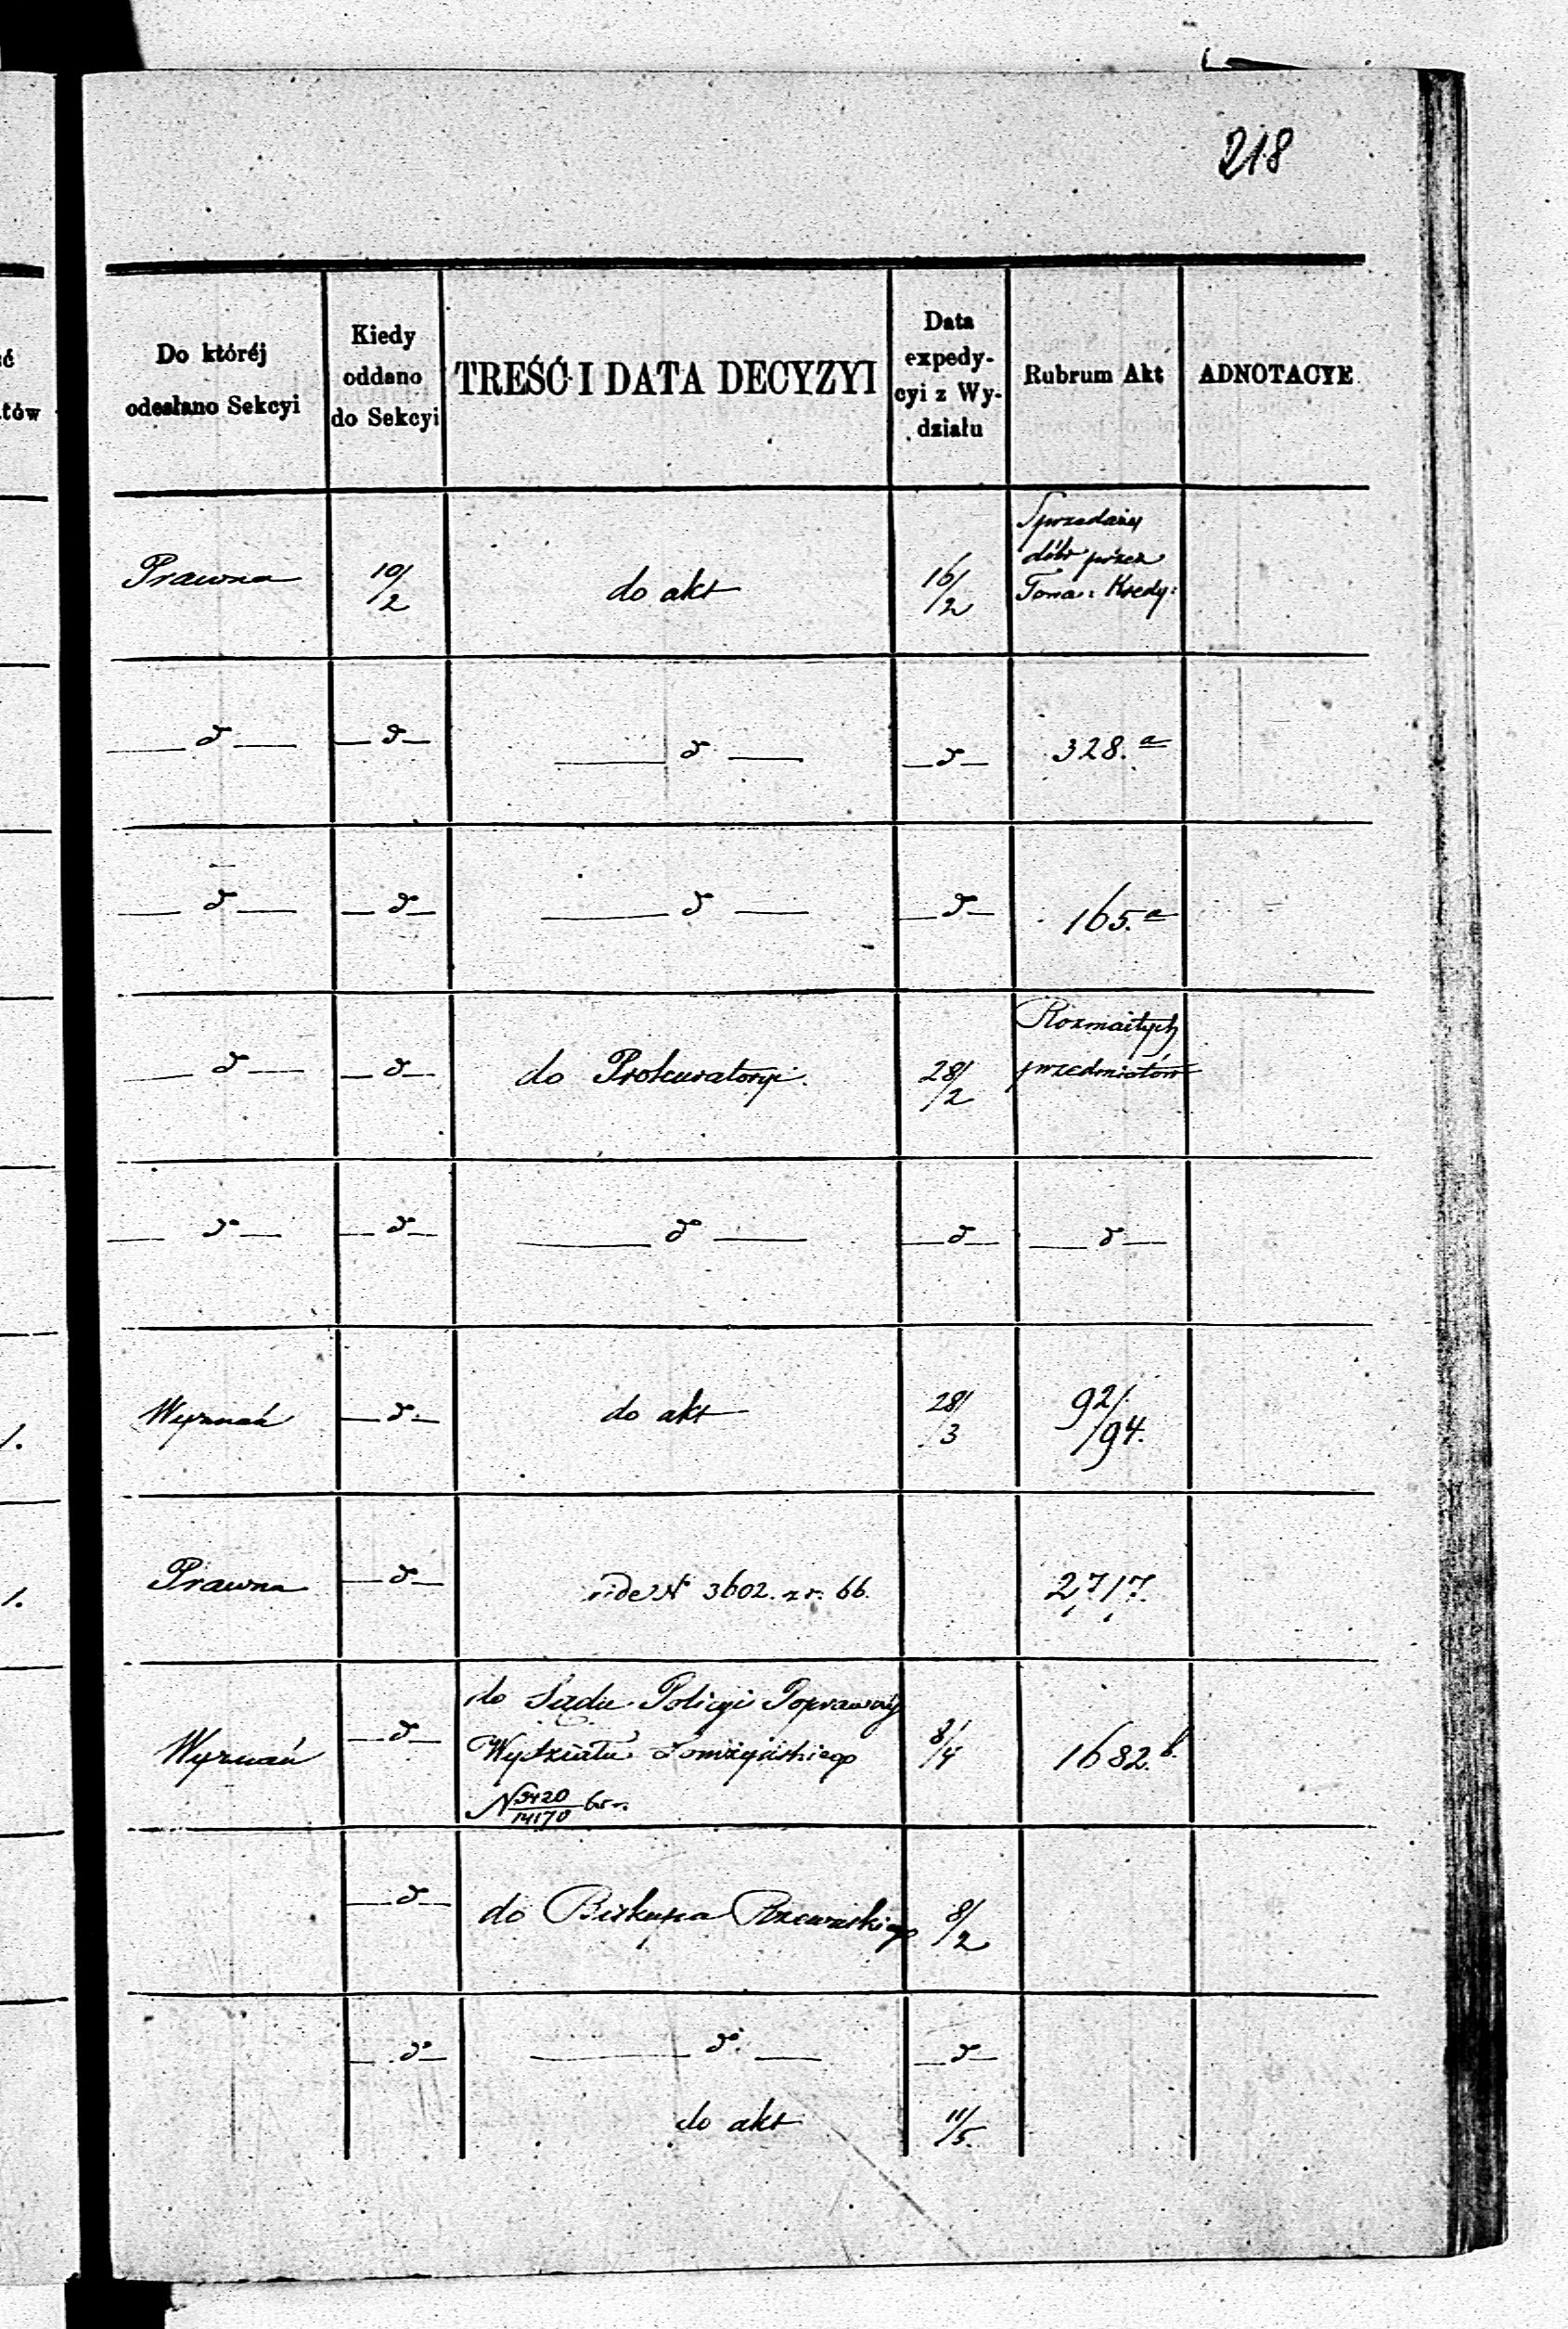 218
ć
tów
Do któréj
odesłano Sekcyi
Kiedy
oddano
do Sekcyi
TREŚĆ I DATA DECYZYI
Data
expedy-
cyi z Wy-
działu
Rubrum Akt
ADNOTACYE
Prawna
10/2
do akt
16/2
Sprzedaży
dóbr przez
Towa: Kredy:
— d° —
— d° —
— d° —
— d° —
328.a
— d° —
— d° —
— d° —
— d° —
165.a
— d° —
— d° —
do Prokuratoryi.
28/2
Rozmaitych
przedmiotów
— d° —
— d° —
— d° —
— d° —
— d° —
Wyznań
— d° —
do akt
28/3
92/94.
Prawna
— d° —
vide N° 3602. z r. 66.
2717.
Wyznań
— d° —
do Sądu Policyi Poprawczéj
Wydziału Łomżyńskiego
N 5420/14170 65 r.
8/4
1682.b.
— d° —
do Biskupa Rzewuskiego
8/2
— d° —
— d° —
— d° —
do akt
11/5.